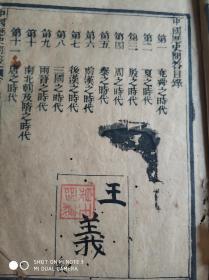 中國歷史問答目錄
第一　堯舜之時代
第二　夏之時代
第三　殷之時代
第四　周之時代
第五　秦之時代
第六　前漢之時代
第七　後漢之時代
第八　三國之時代
第九　兩晉之時代
第十　南北朝及隋之時代
第十一　唐之時代
王
義